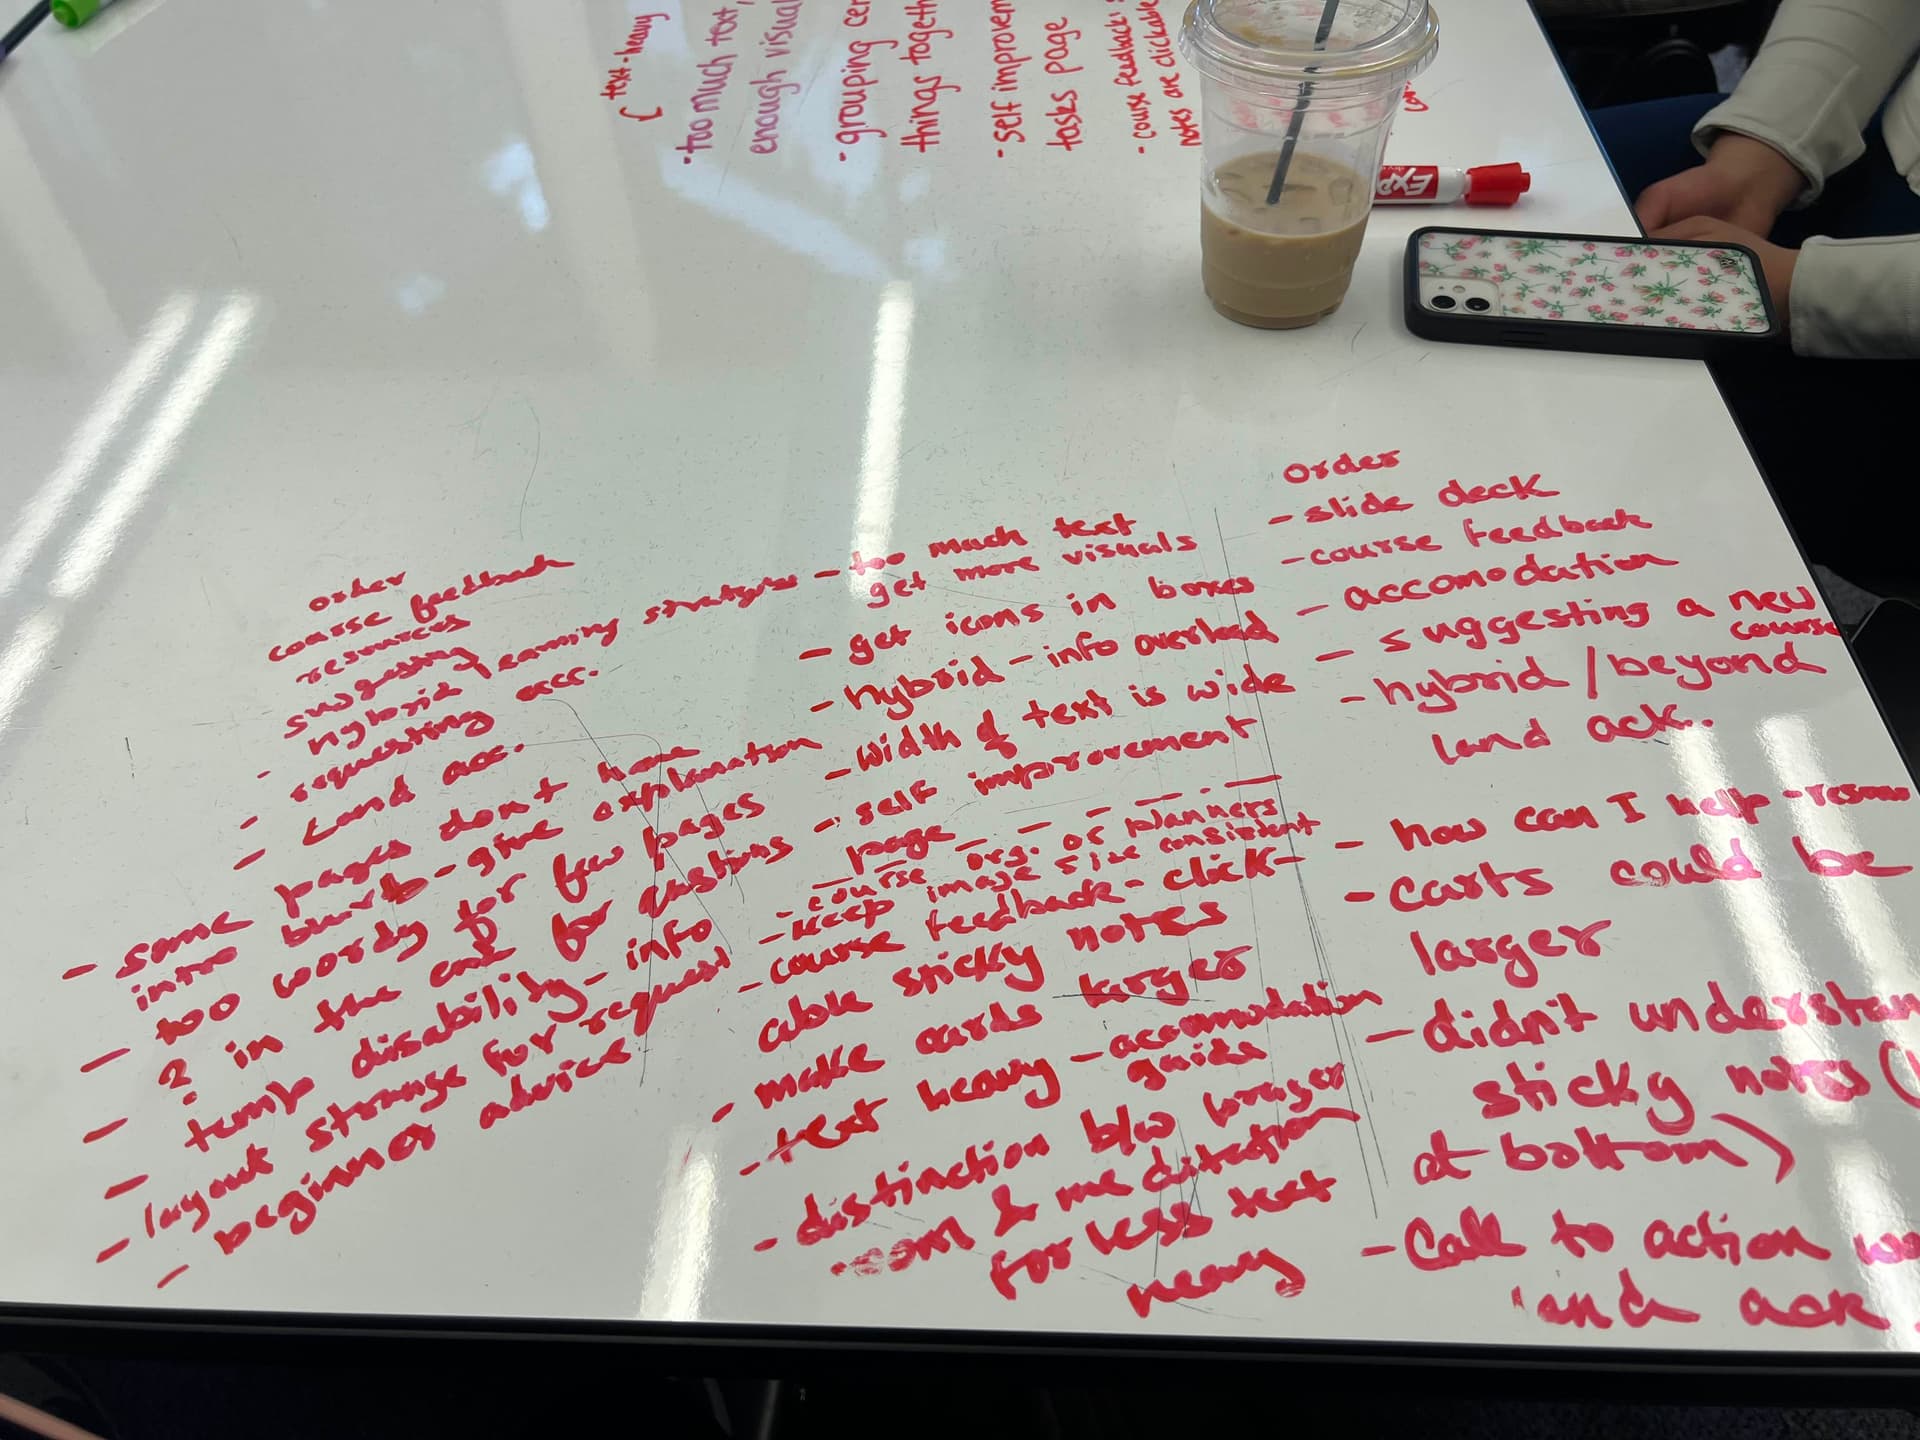 text-heavy
- too much text,
enough visual
- grouping cer
things togeth
- self improvem
tasks page
- course feedback:
notes are clickable
EXP
order
course feedback
resources
suggesting
- hybrid learning strategies
requesting acc.
- Land acc.
- some pages don't have
intro blurb - give explanation
- too wordy for few pages
- ? in the for
- temp disability - info
- layout strange for request
- beginner advice
- too much text
get more visuals
- get icons in boxes
- hybrid - info overload
- width of text is wide
- self improvement
page
- course org. or planners
- keep image size consistent
- course feedback - click-
able sticky notes
- make cards larger
- text heavy - accomodation
guide
- distinction b/w prayer
room & meditation
for less text
heavy
Order
- slide deck
- course feedback
- accomodation
- suggesting a new
course
- hybrid / beyond
land ack.
- how can I help -
- carts could be
larger
- didn't understan
sticky notes (
at bottom)
- Call to action
land ack.